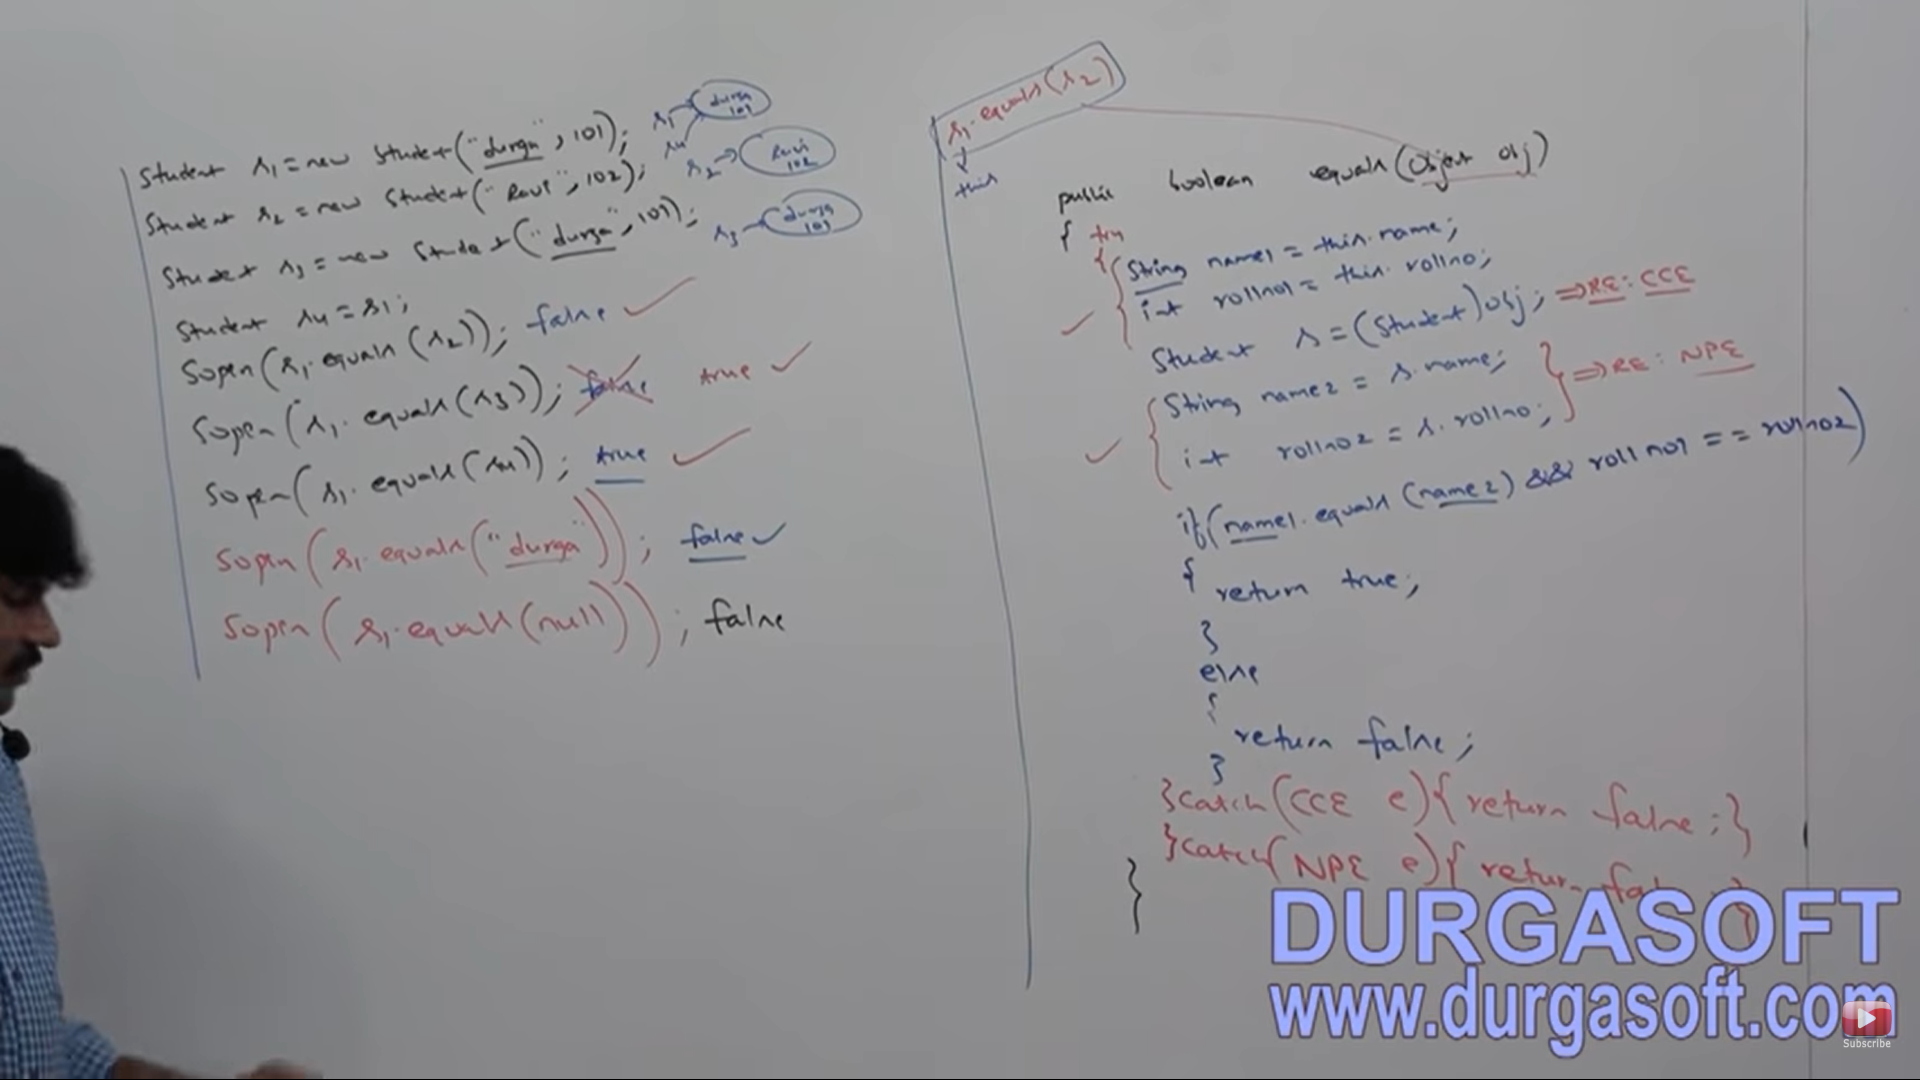 Student s1 = new Student("durga", 101);
Student s2 = new Student("Ravi", 102);
Student s3 = new Student("durga", 101);
Student s4 = s1;
Sopln(s1.equals(s2)); false
Sopln(s1.equals(s3)); false true
Sopln(s1.equals(s4)); true
Sopln(s1.equals("durga")); false
Sopln(s1.equals(null)); false
s1 durga
101
s4
s2 Ravi
102
s3 durga
101
s1.equals(s2)
this
public boolean equals(Object obj)
{ try
{ String name1 = this.name;
int rollno1 = this.rollno;
Student s = (Student)obj; ⇒RE: CCE
String name2 = s.name;
int rollno2 = s.rollno; } ⇒RE: NPE
if(name1.equals(name2) && rollno1 == rollno2)
{
return true;
}
else
{
return false;
}
}catch(CCE e){ return false;}
}catch(NPE e){ return false;}
}
DURGASOFT
www.durgasoft.com
Subscribe